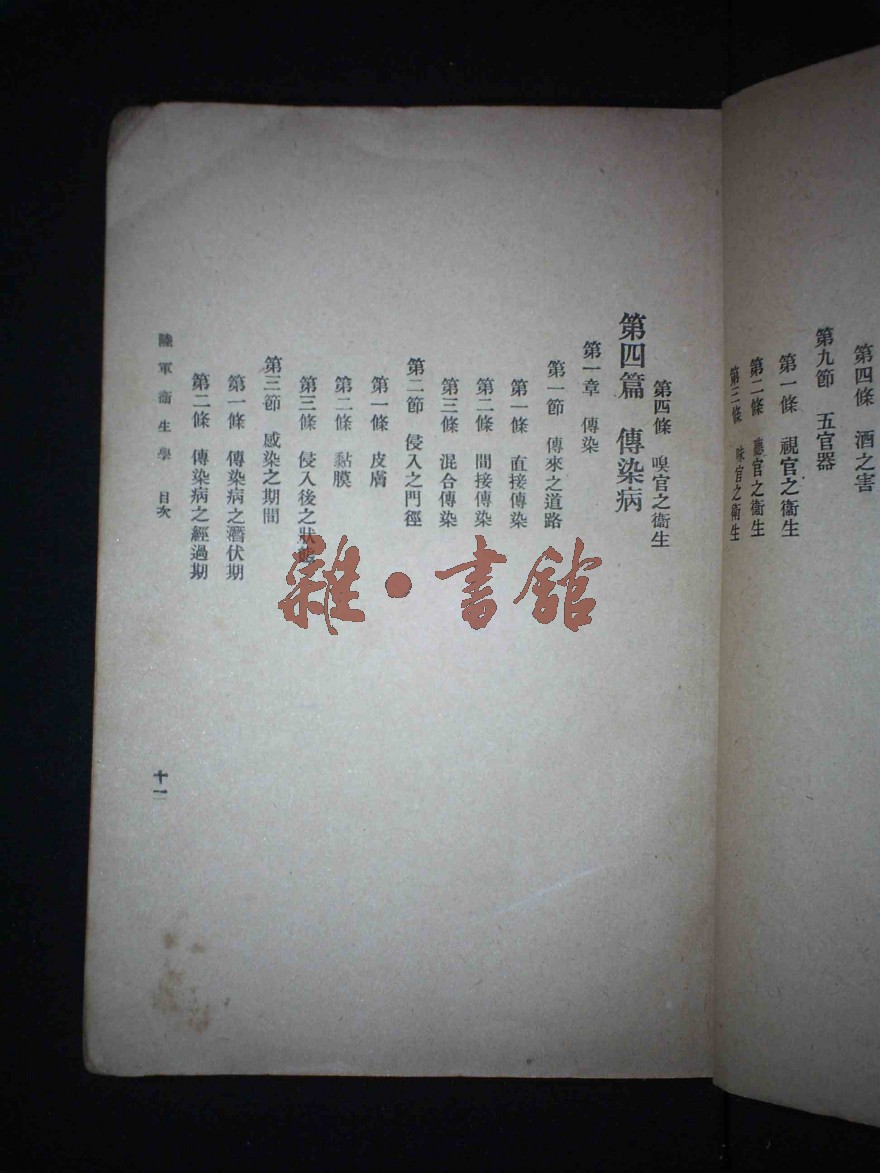 第四條 酒之害
第九節 五官器
第一條 視官之衞生
第二條 聽官之衞生
第三條 味官之衞生
第四條 嗅官之衞生
第四篇 傳染病
第一章 傳染
第一節 傳來之道路
第一條 直接傳染
第二條 間接傳染
第三條 混合傳染
第二節 侵入之門徑
第一條 皮膚
第二條 黏膜
第三條 侵入後之狀態
第三節 感染之期間
第一條 傳染病之潛伏期
第二條 傳染病之經過期
陸軍衞生學 目次
十一
雜·書館